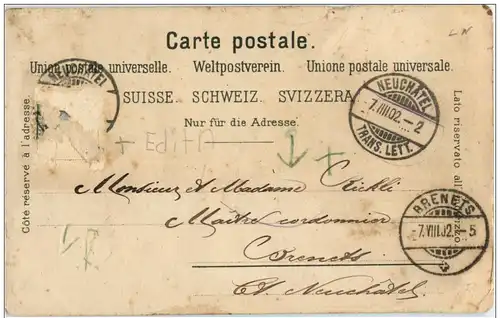 Carte postale.
Union postale universelle. Weltpostverein. Unione postale universale.
SUISSE. SCHWEIZ. SVIZZERA.
Nur für die Adresse.
Côté réservé à l'adresse.
Lato riservato all'
NEUCHÂTEL
NEUCHÂTEL
-7.VIII.02.-2
TRANS. LETT.
+ Edit A
Monsieur et Madame Rickli
Maître cordonnier
Brenets
Ct. Neuchâtel
BRENETS
-7.VIII.02.-5